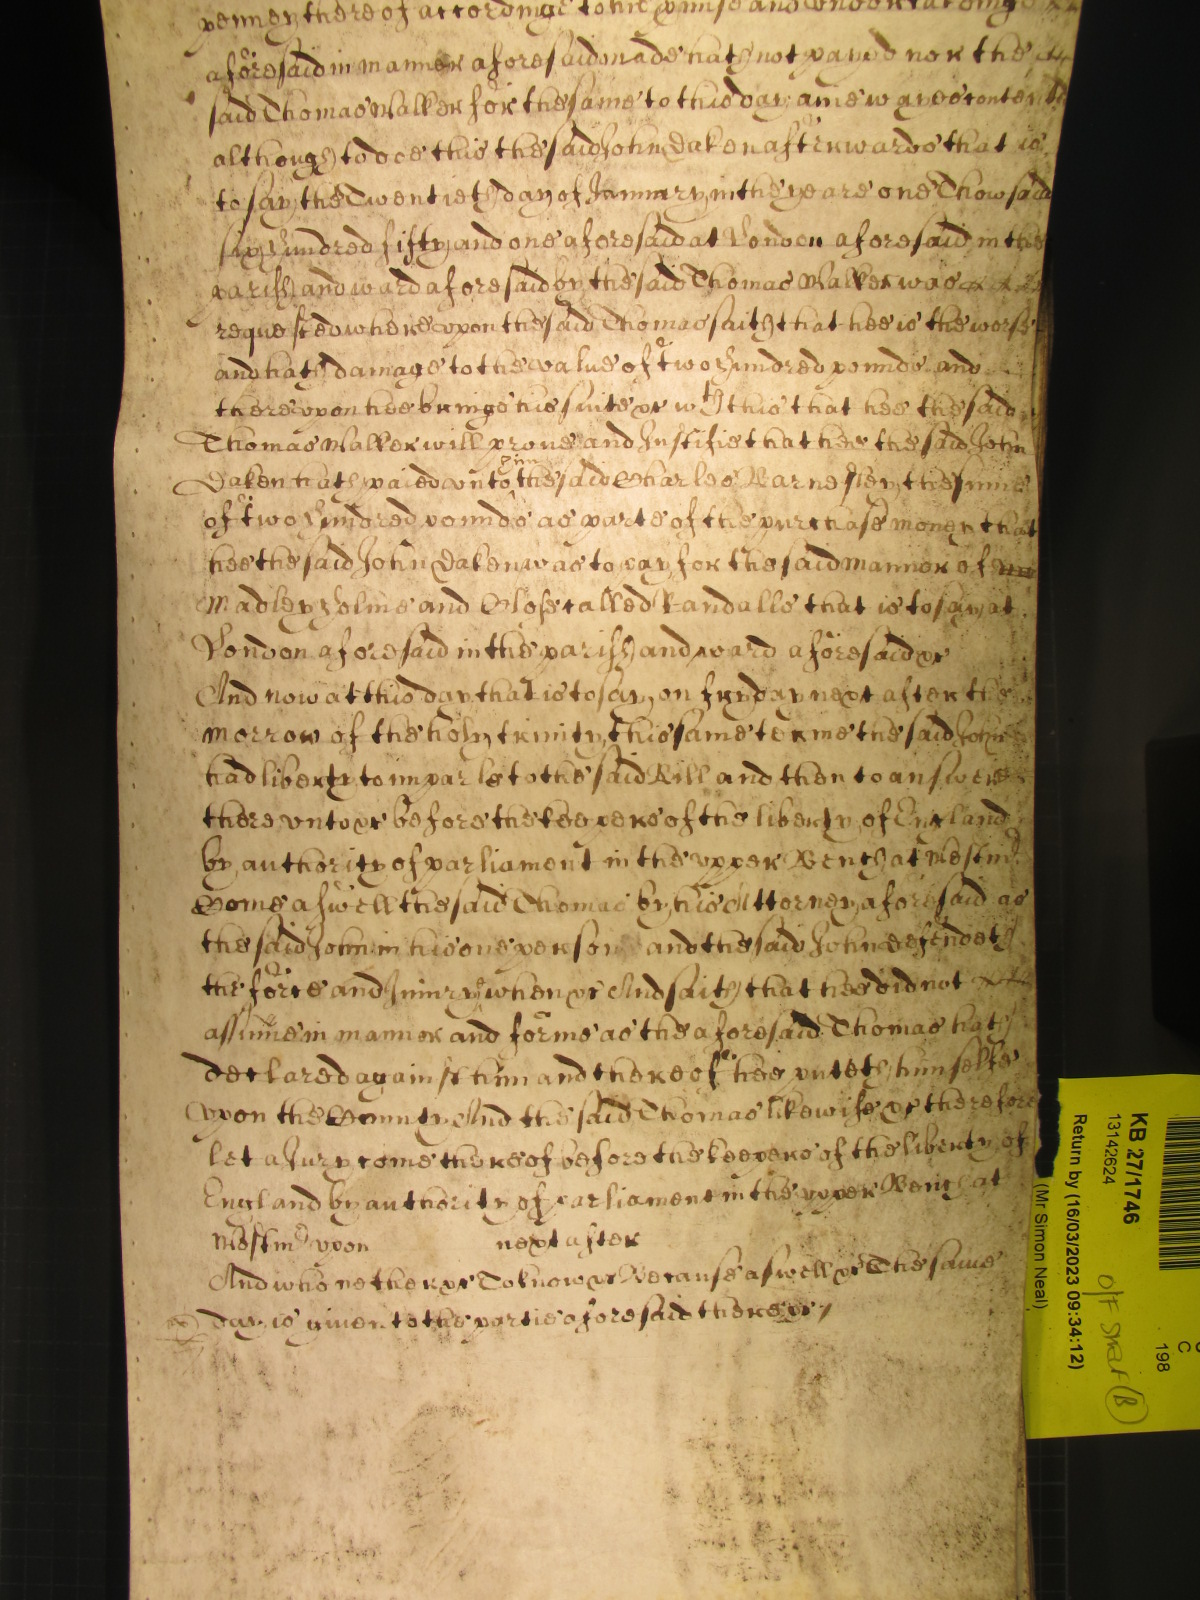 penney thereof accordinge to his pmise and vndertakinge
aforesaid in manner aforesaid made hath not payed nor the
said Thomas Walker for the same to this day anie wayes content
although to doe this the said John Daken afterwards that is
to say the Twentieth day of January in the yeare one Thowsand
six hundred fifty and one aforesaid at London aforesaid in the
parish and ward aforesaid by the said Thomas Walker was
requested wherevpon the said Thomas saith that hee is the worse
and hath damage to the value of two hundred pounds and
therevpon hee brings his suite &c wth this that hee the said
Thomas Walker will proue and Justifie that hee the said John
Daken hath paied vnto the said Charles Barnesley the summe
of two hundred pounds as parte of the purchase money that
hee the said John Daken was to pay for the said mannor of
Madley holme and Close called Randalls that is to say at
London aforesaid in the parish and ward aforesaid &c
And now at this day that is to say on fryday next after the
morrow of the holy trinity this same terme the said John
had liberty to imparle to the said Bill and then to answere
therevnto &c before the keepers of the liberty of England
by authority of parliament in the vpper Bench at Westmr
Come aswell the said Thomas by his Attorney aforesaid as
the said John in his one person and the said John defendeth
the force and Iniury when &c And saith that hee did not
assume in manner and forme as the aforesaid Thomas hath
declared against him and thereof hee puteth himselfe
vpon the Country And the said Thomas likewise &c therefore
let a Jury come thereof before the keepers of the liberty of
England by authority of parliament in the vpper Bench at
Westmr vpon next after
And who nether &c To know &c Because aswell &c The same
day is given to the parties aforesaid there &c /
KB 27/1746
13142624
Return by (16/03/2023 09:34:12)
(Mr Simon Neal)
O/F Smart (B)
C
198